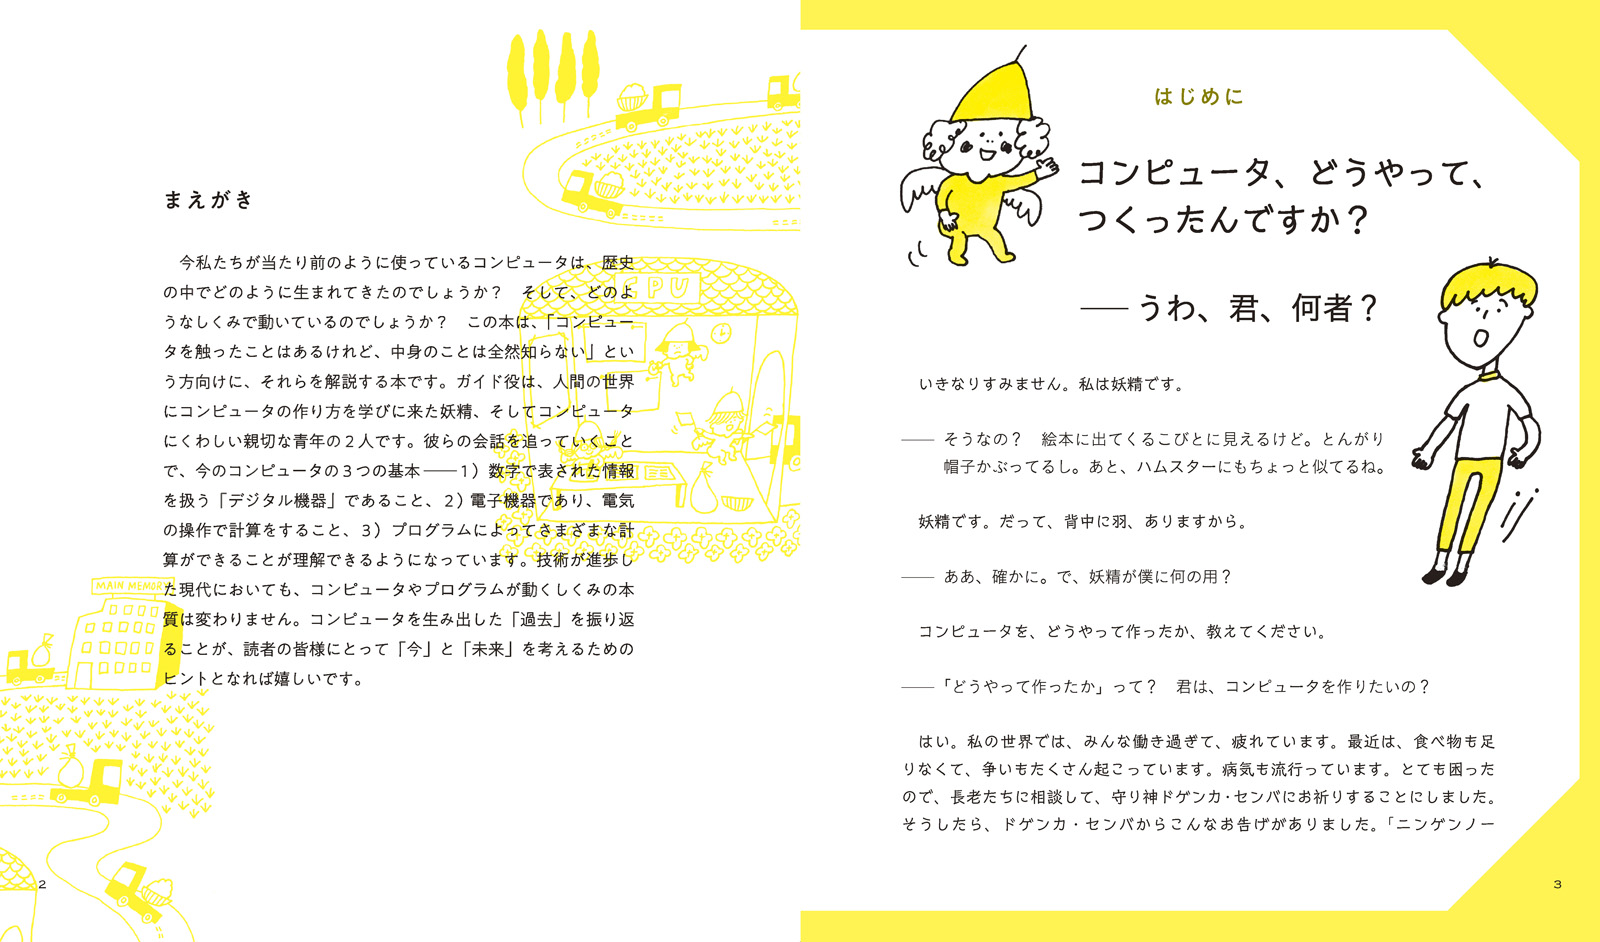 まえがき
今私たちが当たり前のように使っているコンピュータは、歴史
の中でどのように生まれてきたのでしょうか？　そして、どのよ
うなしくみで動いているのでしょうか？　この本は、「コンピュー
タを触ったことはあるけれど、中身のことは全然知らない」とい
う方向けに、それらを解説する本です。ガイド役は、人間の世界
にコンピュータの作り方を学びに来た妖精、そしてコンピュータ
にくわしい親切な青年の２人です。彼らの会話を追っていくこと
で、今のコンピュータの３つの基本──１）数字で表された情報
を扱う「デジタル機器」であること、２）電子機器であり、電気
の操作で計算をすること、３）プログラムによってさまざまな計
算ができることが理解できるようになっています。技術が進歩し
た現代においても、コンピュータやプログラムが動くしくみの本
質は変わりません。コンピュータを生み出した「過去」を振り返
ることが、読者の皆様にとって「今」と「未来」を考えるための
ヒントとなれば嬉しいです。
CPU
MAIN MEMORY
2
はじめに
コンピュータ、どうやって、
つくったんですか？
── うわ、君、何者？
いきなりすみません。私は妖精です。
── そうなの？　絵本に出てくるこびとに見えるけど。とんがり
帽子かぶってるし。あと、ハムスターにもちょっと似てるね。
妖精です。だって、背中に羽、ありますから。
── ああ、確かに。で、妖精が僕に何の用？
コンピュータを、どうやって作ったか、教えてください。
──「どうやって作ったか」って？　君は、コンピュータを作りたいの？
はい。私の世界では、みんな働き過ぎて、疲れています。最近は、食べ物も足
りなくて、争いもたくさん起こっています。病気も流行っています。とても困った
ので、長老たちに相談して、守り神ドゲンカ・センバにお祈りすることにしました。
そうしたら、ドゲンカ・センバからこんなお告げがありました。「ニンゲンノー
3